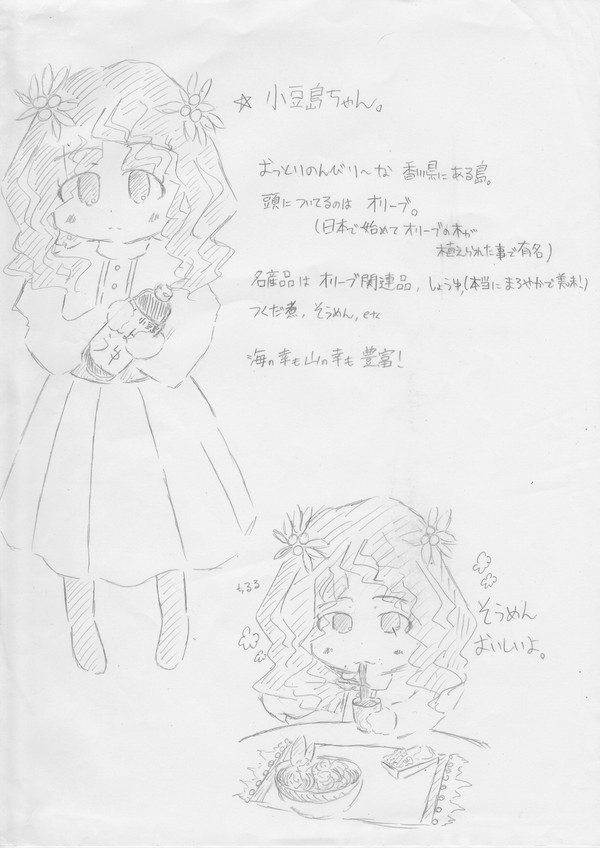 ☆ 小豆島ちゃん。
おっとりのんびり～な 香川県にある島。
頭についてるのは オリーブ。
(日本で始めて オリーブの木が
植えられた事で有名)
名産品は オリーブ関連品, しょうゆ(本当に まろやかで美味!)
つくだ煮, そうめん, etc
海の幸も山の幸も 豊富!
小豆島
しょうゆ
ちるる
そうめん
おいしいよ。